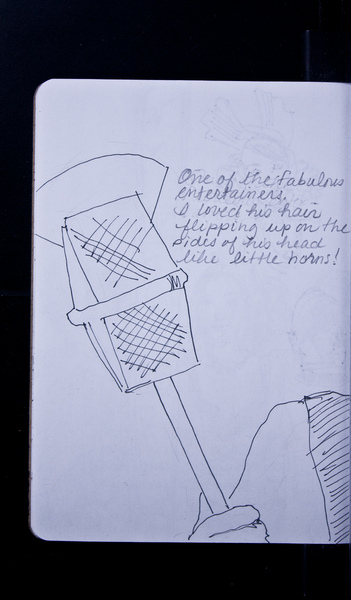 One of the fabulous
entertainers.
I loved his hair
flipping up on the
sides of his head
like little horns!